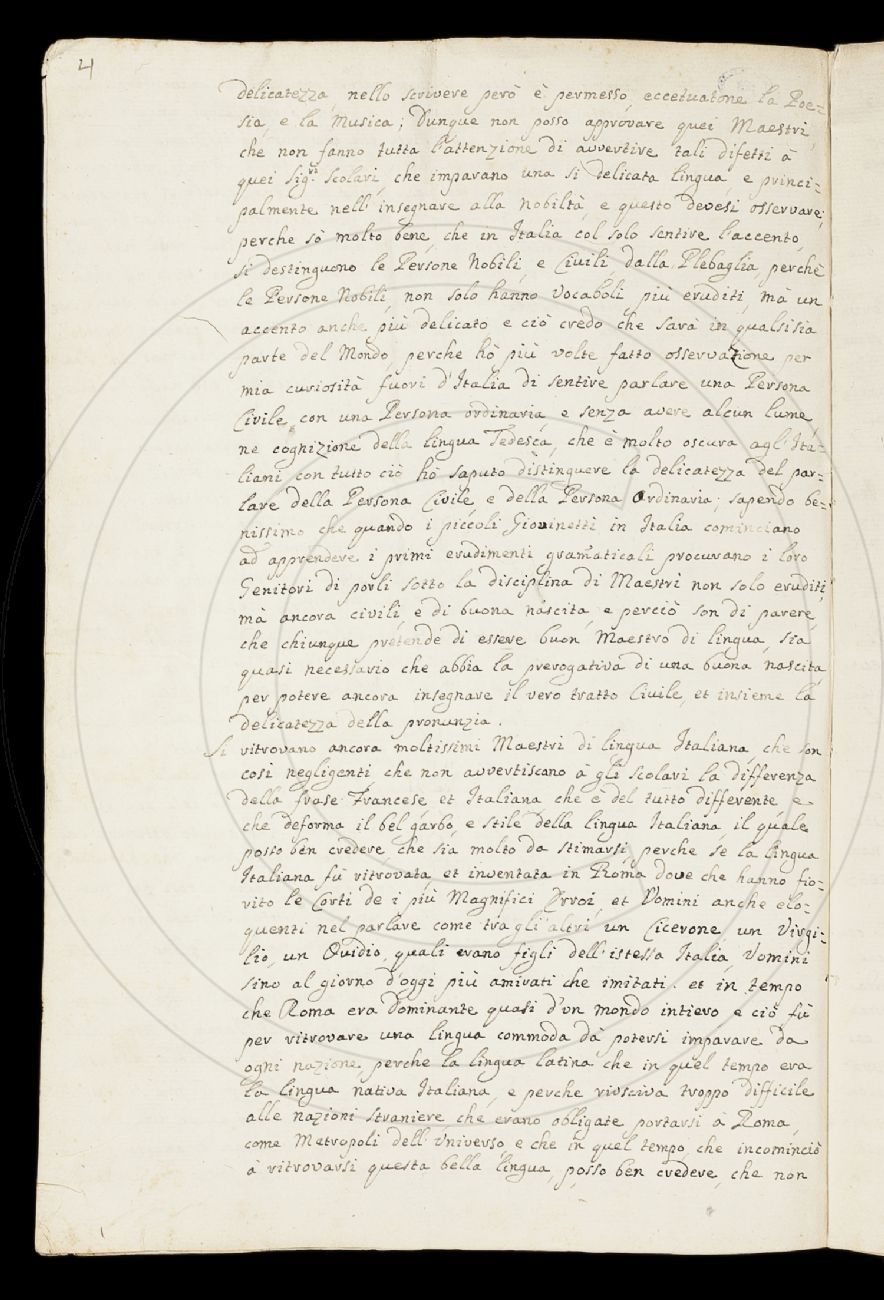 4
delicatezza, nello scrivere però è permesso, eccetuatone la Poe=
sia, e la Musica; Dunque non posso approvare quei Maestri,
che non fanno tutta l'attenzione di avvertire tali difetti à
quei Sig.ri Scolari, che imparano una sì delicata lingua e princi=
palmente nell'insegnare alla Nobiltà, e questo devesi osservare;
perche sò molto bene, che in Italia col solo sentire l'accento,
si destinguono le Persone Nobili, e Civili, dalla Plebaglia, perchè
le Persone Nobili, non solo hanno Vocaboli più eruditi, mà un
accento anche più delicato e ciò credo che sarà in qualsisia
parte del Mondo, perche hò più volte fatto osservazione per
mia curiosità fuori d'Italia di sentire parlare una Persona
Civile, con una Persona ordinaria, e senza avere alcun lume,
ne cognizione della lingua Tedesca, che è molto oscura agl'Ita=
liani con tutto ciò hò saputo distinguere la delicatezza del par=
lare della Persona Civile, e della Persona Ordinaria; sapendo be=
nissimo che quando i piccoli Giovinetti in Italia cominciano
ad apprendere i primi erudimenti gramaticali procurano i loro
Genitori di porli sotto la disciplina di Maestri non solo eruditi,
mà ancora civili, e di buona nascita, e perciò son di parere,
che chiunque pretende di essere buon Maestro di lingua, sia
quasi necessario che abbia la prerogativa di una buona nascita
per potere ancora insegnare il vero tratto Civile, et insieme la
delicatezza della pronunzia.
Si ritrovano ancora moltissimi Maestri di lingua Italiana, che son
così negligenti che non avvertiscano à gli scolari la differenza
della frase Francese et Italiana che è del tutto differente e
che deforma il bel garbo, e stile della lingua Italiana, il quale
posso ben credere, che sia molto da stimarsi, perche se la lingua
Italiana fù ritrovata, et inventata in Roma dove che hanno fio=
rito le Corti de i più Magnifici Erroi, et Vomini anche elo=
quenti nel parlare come tra gli altri, un Cicerone, un Virgi=
lio, un Ovidio, quali erano figli dell'istessa Italia, Vomini
sino al giorno d'oggi più amirati che imitati. et in tempo
che Roma era Dominante quasi d'vn mondo intiero e ciò fù
per ritrovare una lingua commoda dà potersi imparare da
ogni nazione, perche la lingua latina che in quel tempo era
la lingua nativa Italiana, e perche riusciva troppo difficile
alle nazioni straniere che erano obligate portarsi à Roma,
come Metropoli dell'Vniverso, e che in quel tempo, che incominciò
à ritrovarsi questa bella lingua, posso ben credere, che non